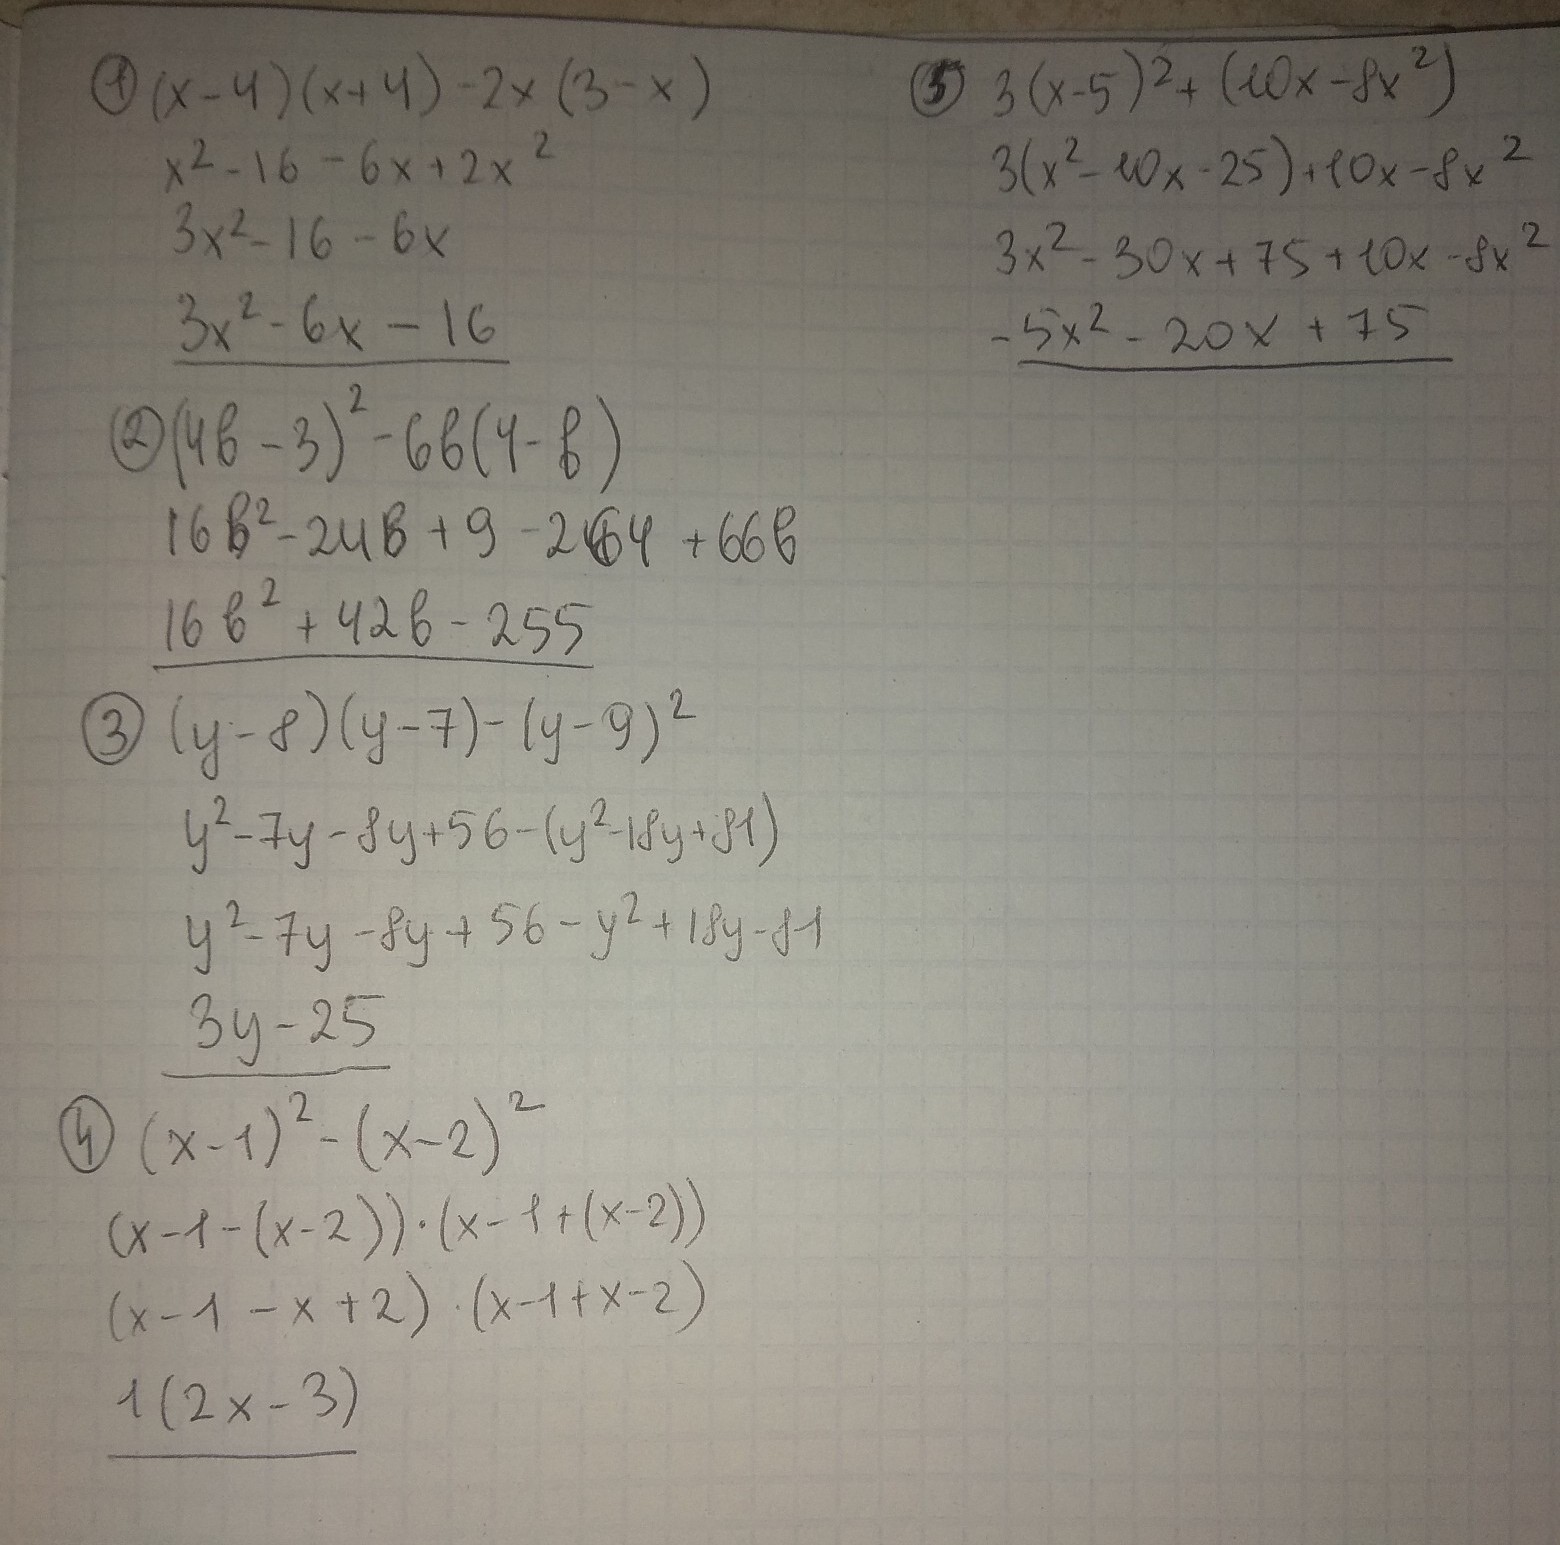 ① (x-4)(x+4)-2x(3-x)
x²-16-6x+2x²
3x²-16-6x
3x²-6x-16
② (4b-3)²-6b(4-b)
16b²-24b+9-264+66b
16b²+42b-255
③ (y-8)(y-7)-(y-9)²
y²-7y-8y+56-(y²-18y+81)
y²-7y-8y+56-y²+18y-81
3y-25
④ (x-1)²-(x-2)²
(x-1-(x-2))·(x-1+(x-2))
(x-1-x+2)·(x-1+x-2)
1(2x-3)
⑤ 3(x-5)²+(10x-8x²)
3(x²-10x-25)+10x-8x²
3x²-30x+75+10x-8x²
-5x²-20x+75